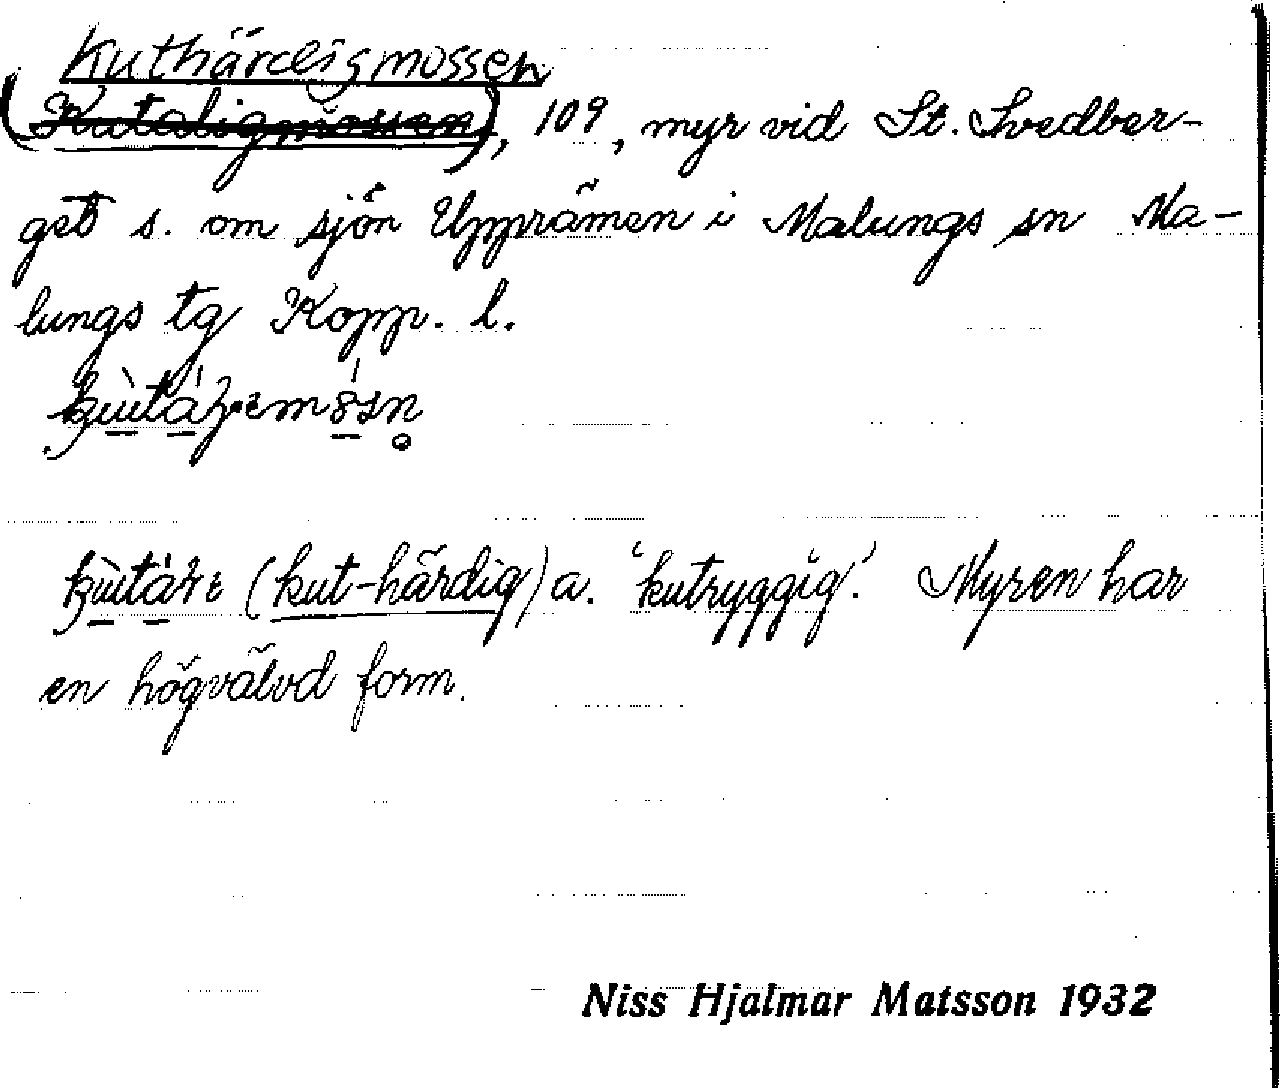 Kuthärdigmossen
(Kutaligmossen), 109, myr vid St. Svedber-
get s. om sjön Upprämen i Malungs sn Ma-
lungs tg Kopp. l.
(kut-härdig) a. 'kutryggig'. Myren har
en högvälvd form.
Niss Hjalmar Matsson 1932